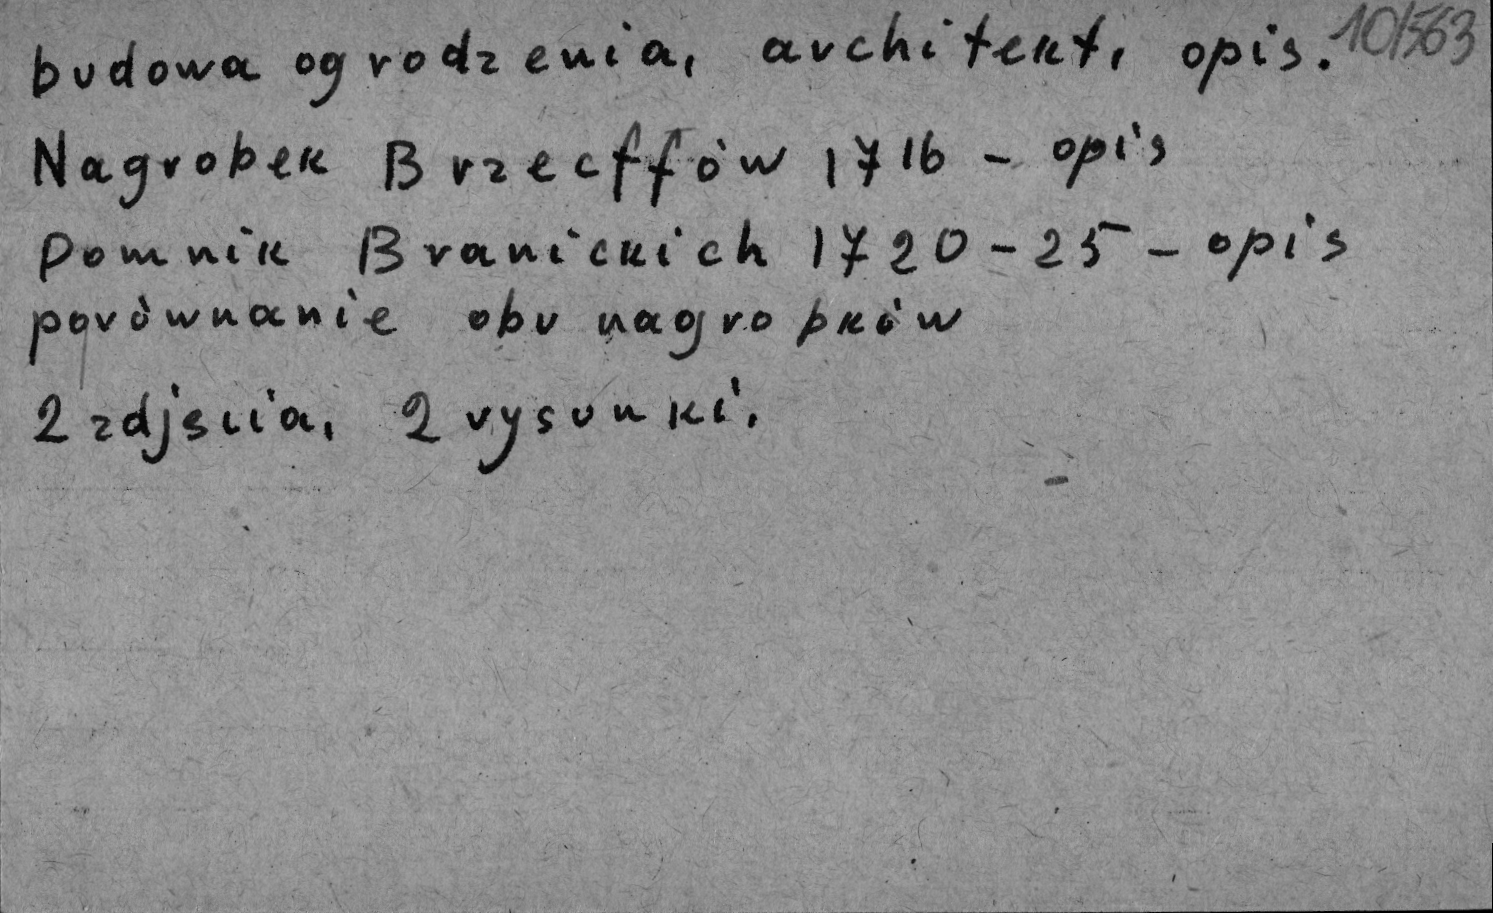 budowa ogrodzenia, architekt, opis. 10/563
Nagrobek Brzecffów 1716 - opis
Pomnik Branickich 1720-25 - opis
porównanie obu nagrobków
2 zdjęcia, 2 rysunki.